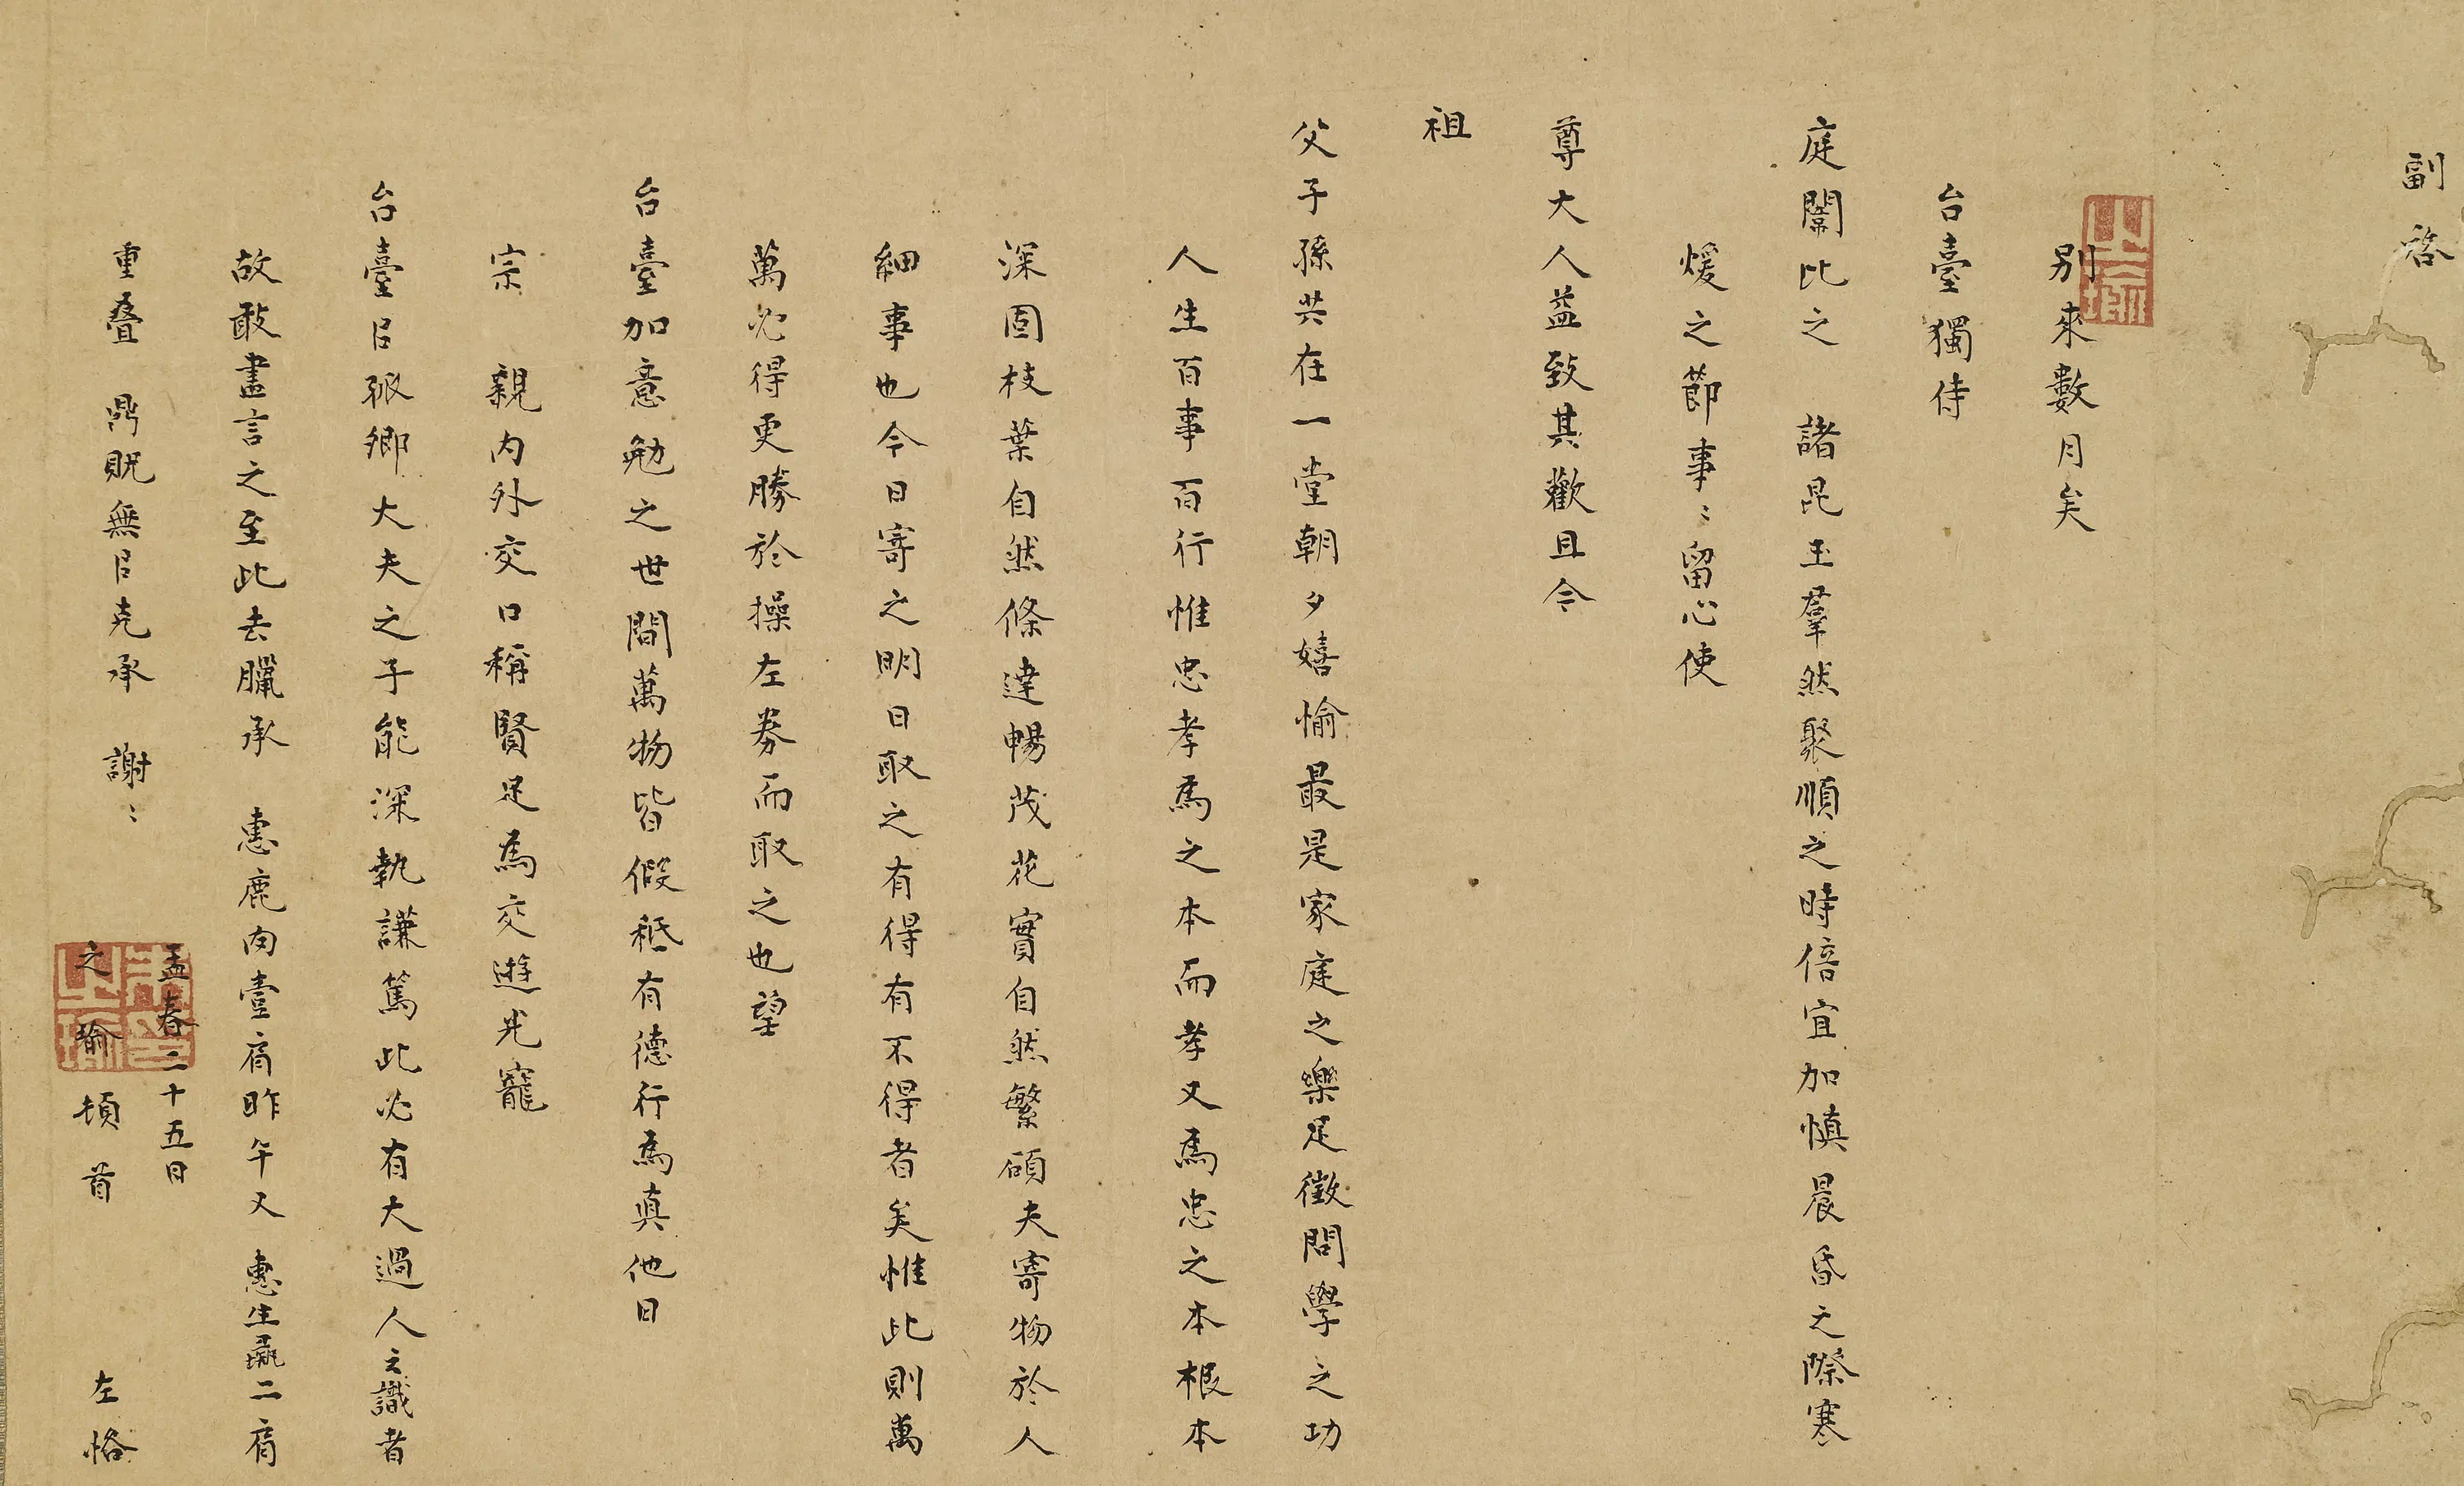 副啓
別來數月矣
台臺獨侍
庭闈比之 諸昆玉羣然聚順之時倍宜加慎晨昏之際寒
煖之節事〻留心使
尊大人益致其歡且令
祖
父子孫共在一堂朝夕嬉愉最是家庭之樂足徵問學之功
人生百事百行惟忠孝為之本而孝又為忠之本根本
深固枝葉自然條達暢茂花實自然繁碩夫寄物於人
細事也今日寄之明日取之有得有不得者矣惟此則萬
萬必得更勝於操左券而取之也望
台臺加意勉之世間萬物皆假秪有德行為真他日
宗 親內外交口稱賢足為交遊光寵
台臺㠯孤卿大夫之子能深執謙篤此必有大過人之識者
故敢盡言之至此去臘承 惠鹿肉壹肩昨午又 惠生彘二肩
重疊 鼎貺無㠯克承 謝〻
孟春二十五日
之瑜 頓首 左恪